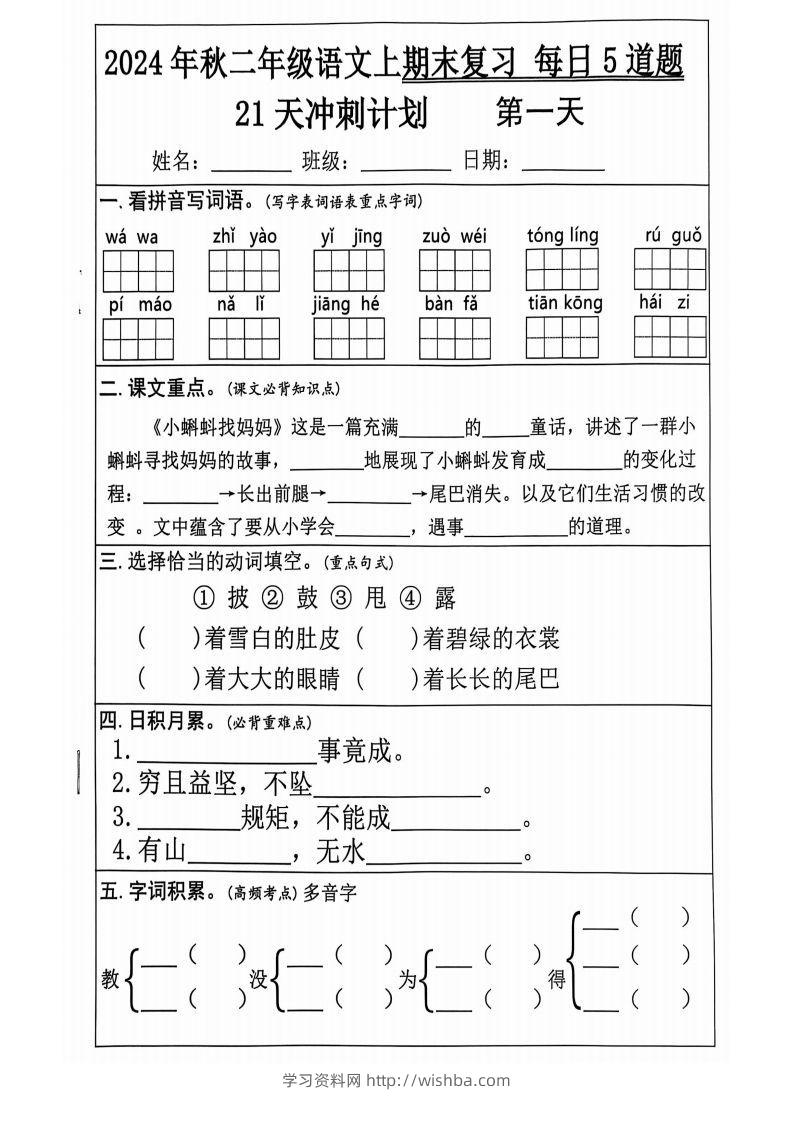 2024 年秋二年级语文上期末复习 每日 5 道题
21 天冲刺计划 第一天
姓名：________ 班级：________ 日期：________
一. 看拼音写词语。(写字表词语表重点字词)
wá wa zhǐ yào yǐ jīng zuò wéi tóng líng rú guǒ
pí máo nǎ lǐ jiāng hé bàn fǎ tiān kōng hái zi
二. 课文重点。(课文必背知识点)
《小蝌蚪找妈妈》这是一篇充满______的_____童话，讲述了一群小
蝌蚪寻找妈妈的故事，_______地展现了小蝌蚪发育成_______的变化过
程：_______→长出前腿→________→尾巴消失。以及它们生活习惯的改
变 。文中蕴含了要从小学会_______，遇事__________的道理。
三. 选择恰当的动词填空。(重点句式)
① 披 ② 鼓 ③ 甩 ④ 露
( )着雪白的肚皮 ( )着碧绿的衣裳
( )着大大的眼睛 ( )着长长的尾巴
四. 日积月累。(必背重难点)
1.______________事竟成。
2.穷且益坚，不坠_____________。
3.________规矩，不能成__________。
4.有山________，无水_____________。
五. 字词积累。(高频考点) 多音字
___ ( )
___ ( ) ___ ( ) ___ ( ) ___ ( )
教 没 为 得
___ ( ) ___ ( ) ___ ( ) ___ ( )
学习资料网 http://wishba.com